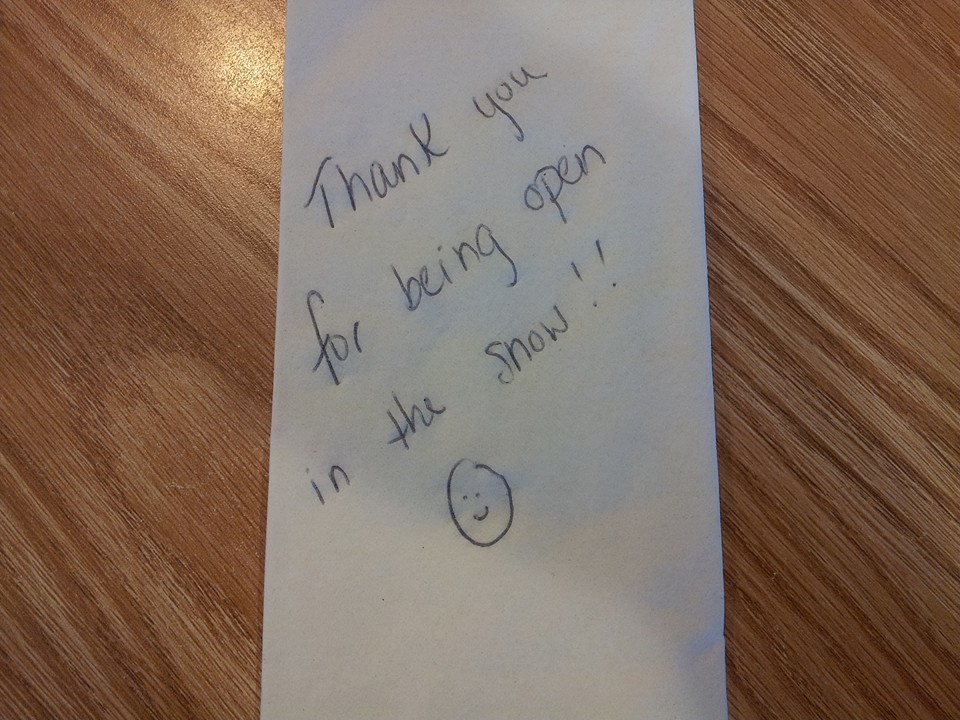 Thank you
for being open
in the snow!!